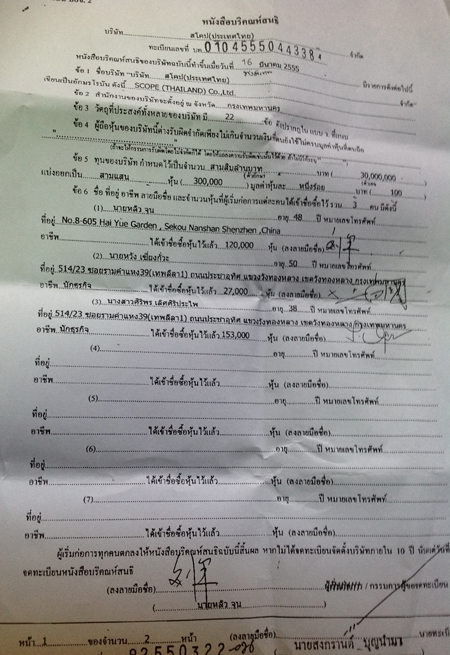 หนังสือบริคณห์สนธิ
บริษัท สโคป(ประเทศไทย) จำกัด
ทะเบียนเลขที่ บค.
หนังสือบริคณห์สนธิของบริษัทฉบับนี้ทำขึ้นเมื่อวันที่ 16 มีนาคม 2555 มีรายการดังต่อไปนี้
ข้อ 1 ชื่อบริษัท "บริษัท สโคป(ประเทศไทย) จำกัด"
เขียนเป็นอักษรโรมัน ดังนี้ SCOPE (THAILAND) Co.,Ltd.
ข้อ 2 สำนักงานของบริษัทจะตั้งอยู่ ณ จังหวัด กรุงเทพมหานคร
ข้อ 3 วัตถุที่ประสงค์ทั้งหลายของบริษัท มี 22 ข้อ ดังปรากฏใน แบบ ว. ที่แนบ
ข้อ 4 ผู้ถือหุ้นของบริษัทนี้ต่างรับผิดจำกัดเพียงไม่เกินจำนวนเงินที่ตนยังใช้ไม่ครบมูลค่าหุ้นที่ตนถือ
ข้อ 5 ทุนของบริษัท กำหนดไว้เป็นจำนวน สามสิบล้านบาท บาท ( 30,000,000 )
แบ่งออกเป็น สามแสน หุ้น ( 300,000 ) มูลค่าหุ้นละ หนึ่งร้อย บาท ( 100 )
ข้อ 6 ชื่อ ที่อยู่ อาชีพ ลายมือชื่อ และจำนวนหุ้นที่ผู้เริ่มก่อการแต่ละคนได้เข้าชื่อซื้อไว้ รวม 3 คน มีดังนี้
(1) นายหลิว จุน อายุ 48 ปี หมายเลขโทรศัพท์
ที่อยู่ No.8-605 Hai Yue Garden , Sekou Nanshan Shenzhen ,China
อาชีพ ได้เข้าชื่อซื้อหุ้นไว้แล้ว 120,000 หุ้น (ลงลายมือชื่อ)
(2) อายุ 50 ปี หมายเลขโทรศัพท์
ที่อยู่ 514/23 ซอยรามคำแหง39(เทพลีลา1) ถนนประชาอุทิศ แขวงวังทองหลาง เขตวังทองหลาง กรุงเทพมหานคร
อาชีพ นักธุรกิจ ได้เข้าชื่อซื้อหุ้นไว้แล้ว 27,000 หุ้น (ลงลายมือชื่อ)
(3) อายุ 38 ปี หมายเลขโทรศัพท์
ที่อยู่ 514/23 ซอยรามคำแหง39(เทพลีลา1) ถนนประชาอุทิศ แขวงวังทองหลาง เขตวังทองหลาง กรุงเทพมหานคร
อาชีพ นักธุรกิจ ได้เข้าชื่อซื้อหุ้นไว้แล้ว 153,000 หุ้น (ลงลายมือชื่อ)
(4) อายุ ปี หมายเลขโทรศัพท์
ที่อยู่
อาชีพ ได้เข้าชื่อซื้อหุ้นไว้แล้ว หุ้น (ลงลายมือชื่อ)
(5) อายุ ปี หมายเลขโทรศัพท์
ที่อยู่
อาชีพ ได้เข้าชื่อซื้อหุ้นไว้แล้ว หุ้น (ลงลายมือชื่อ)
(6) อายุ ปี หมายเลขโทรศัพท์
ที่อยู่
อาชีพ ได้เข้าชื่อซื้อหุ้นไว้แล้ว หุ้น (ลงลายมือชื่อ)
(7) อายุ ปี หมายเลขโทรศัพท์
ที่อยู่
อาชีพ ได้เข้าชื่อซื้อหุ้นไว้แล้ว หุ้น (ลงลายมือชื่อ)
ผู้เริ่มก่อการทุกคนตกลงให้หนังสือบริคณห์สนธิฉบับนี้สิ้นผล หากไม่ได้จดทะเบียนจัดตั้งบริษัทภายใน 10 ปี นับแต่วันที่
จดทะเบียนหนังสือบริคณห์สนธิ
(ลงลายมือชื่อ) ผู้เริ่มก่อการ / กรรมการผู้ขอจดทะเบียน
( นายหลิว จุน )
หน้า 1 ของจำนวน 2 หน้า (ลงลายมือชื่อ) นายทะเบียน